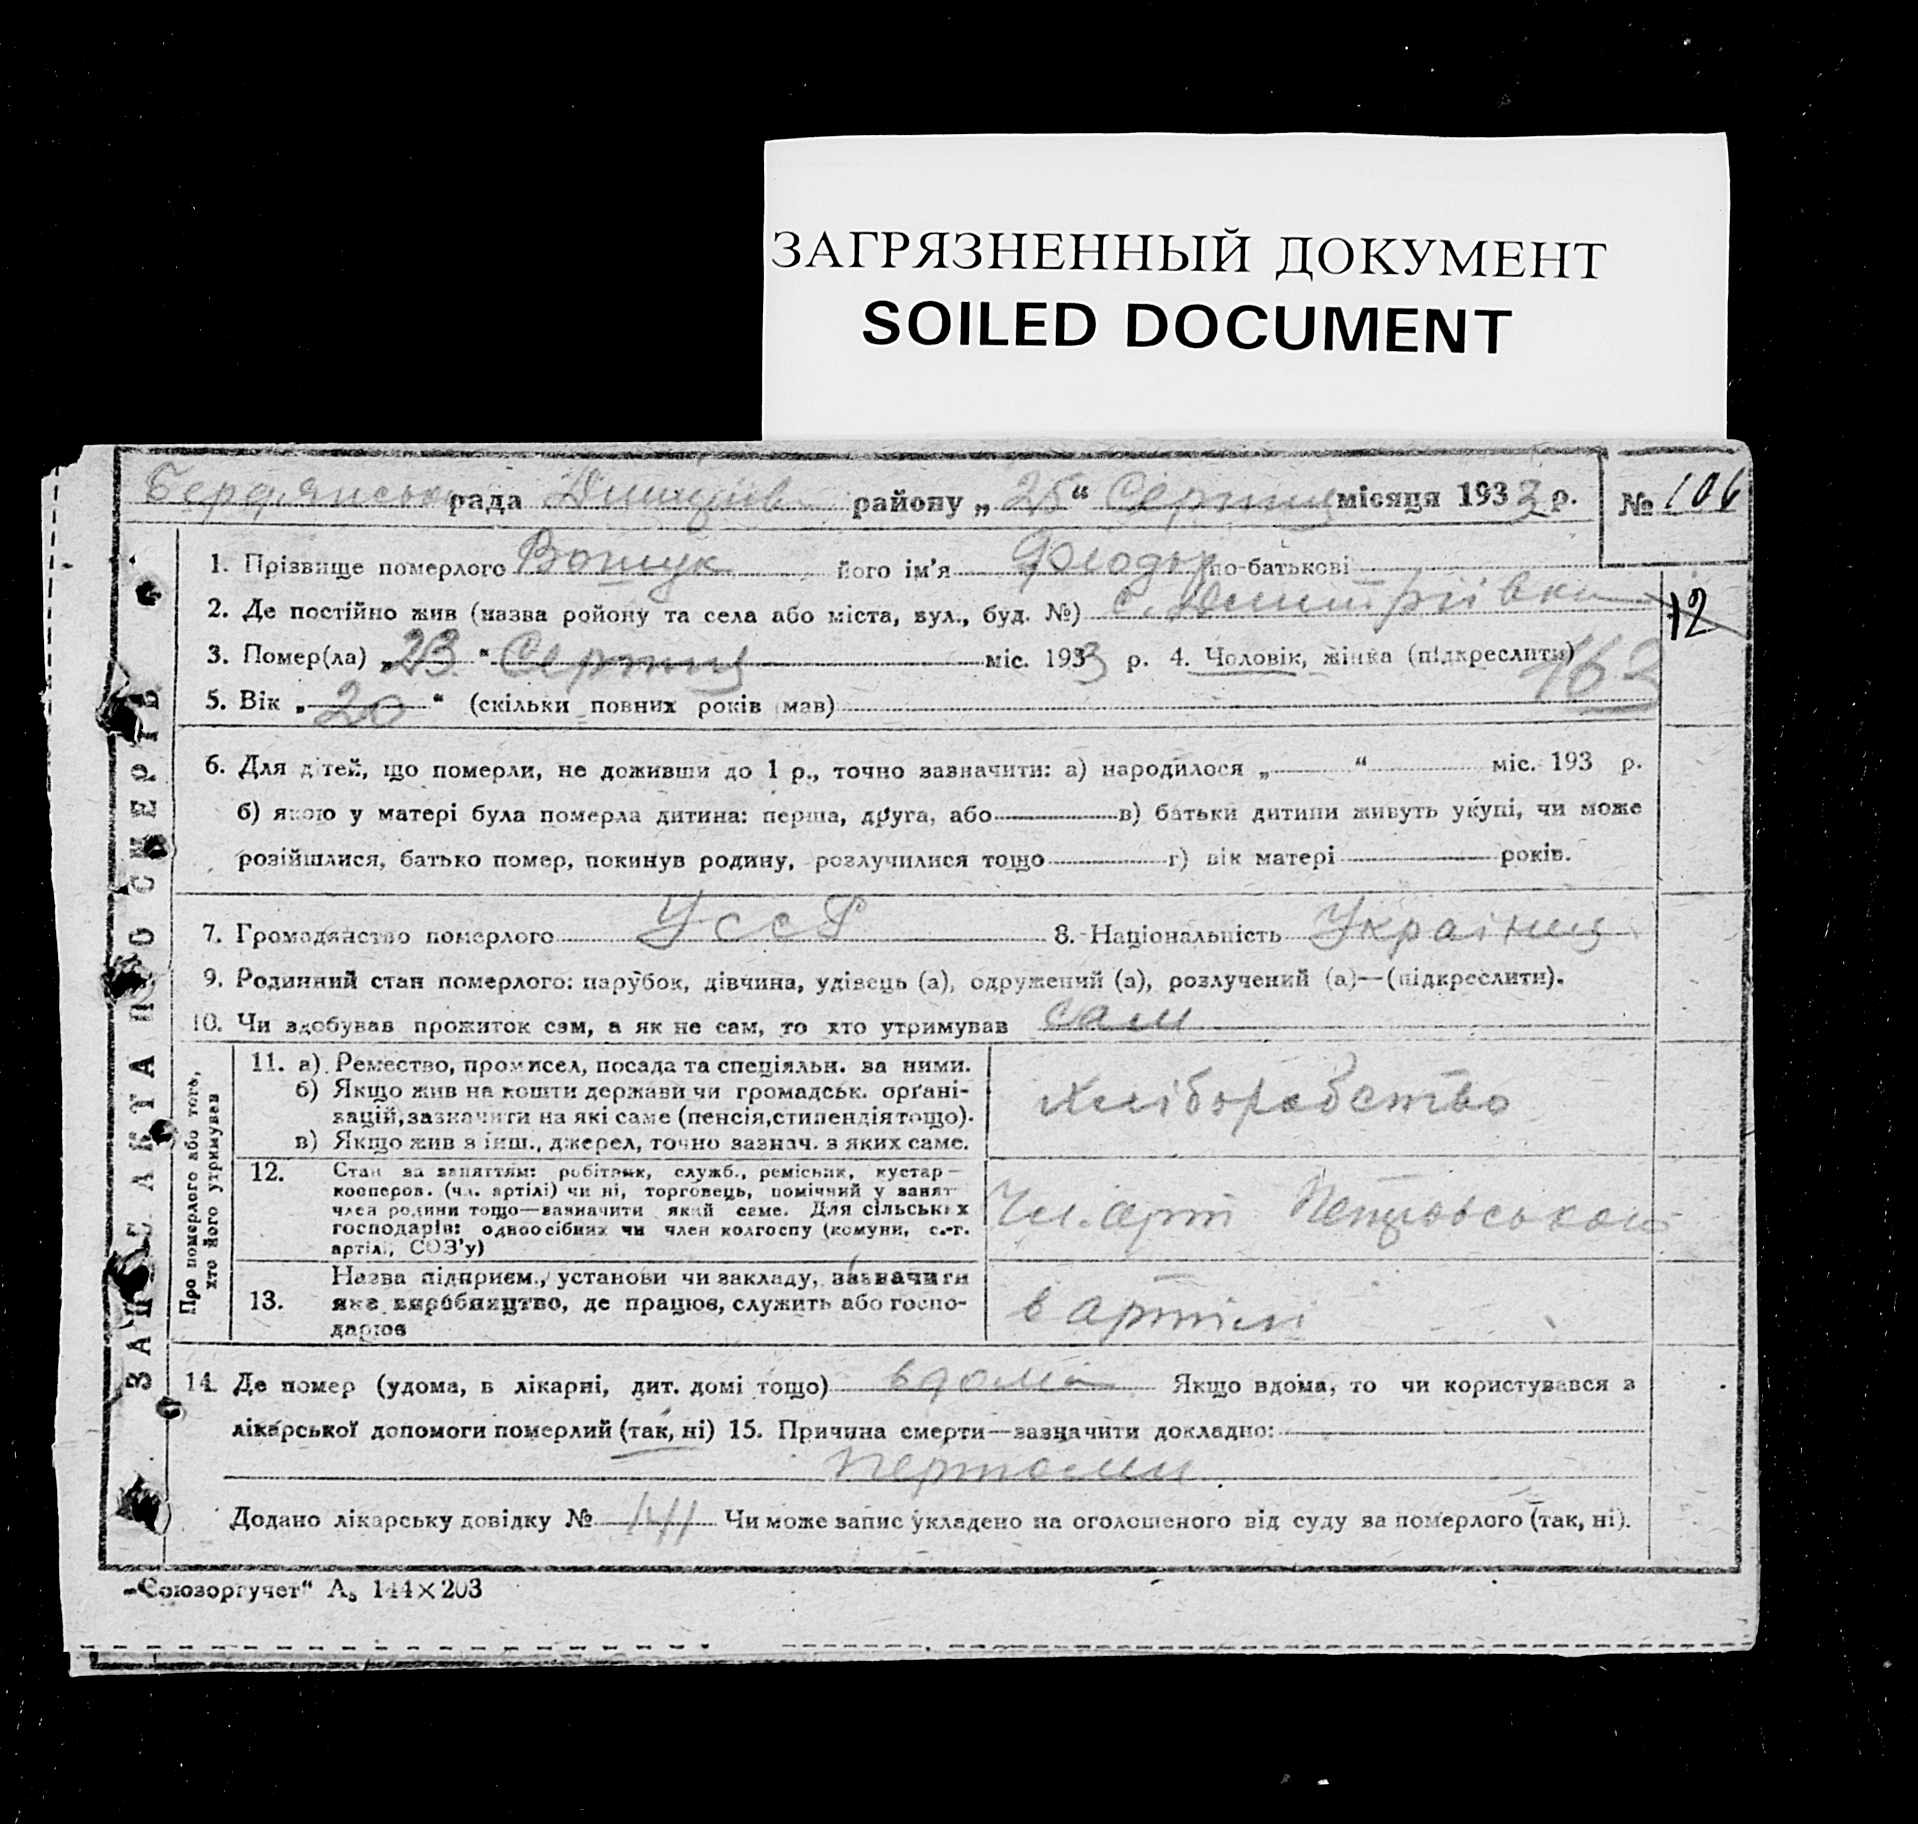 ЗАГРЯЗНЕННЫЙ ДОКУМЕНТ
SOILED DOCUMENT
Бердянська рада району „25“ Серпня місяця 1933 р. № 106
1. Прізвище померлого його ім'я Феодор по-батькові
2. Де постійно жив (назва ройону та села або міста, вул., буд. №) с. Дмитріївка 12
3. Помер(ла) „23“ Серпня міс. 1933 р. 4. Чоловік, жінка (підкреслити)
163
5. Вік „20“ (скільки повних років мав)
6. Для дітей, що померли, не доживши до 1 р., точно зазначити: а) народилося „ “ міс. 193 р.
б) якою у матері була померла дитина: перша, друга, або в) батьки дитини живуть укупі, чи може
розійшлися, батько помер, покинув родину, розлучилися тощо г) вік матері років.
7. Громадянство померлого УССР 8. Національність Українец
9. Родинний стан померлого: парубок, дівчина, удівець (а), одружений (а), розлучений (а)—(підкреслити).
10. Чи здобував прожиток сам, а як не сам, то хто утримував сам
ЗАПИС АКТА ПРО СМЕРТЬ
Про померлого або того,
хто його утримував
11. а) Ремество, промисел, посада та спеціяльн. за ними.
б) Якщо жив на кошти держави чи громадськ. орґані-
зацій, зазначити на які саме (пенсія, стипендія тощо).
в) Якщо жив з інш., джерел, точно зазнач. з яких саме.
хліборобство
12. Стан за заняттям: робітник, служб., ремісник, кустар—
кооперов. (чл. артілі) чи ні, торговець, помічний у занят
член родини тощо—зазначити який саме. Для сільських
господарів: одноосібник чи член колгоспу (комуни, с.-г.
артілі, СОЗ'у)
Чл. арт Петровського
13. Назва підприєм., установи чи закладу, зазначити
яке виробництво, де працюв, служить або госпо-
дарюв
в артілі
14. Де помер (удома, в лікарні, дит. домі тощо) вдома Якщо вдома, то чи користувався з
лікарської допомоги померлий (так, ні) 15. Причина смерти—зазначити докладно:
Додано лікарську довідку № 141 Чи може запис укладено на оголошеного від суду за померлого (так, ні).
„Союзоргучет“ А₅ 144×203